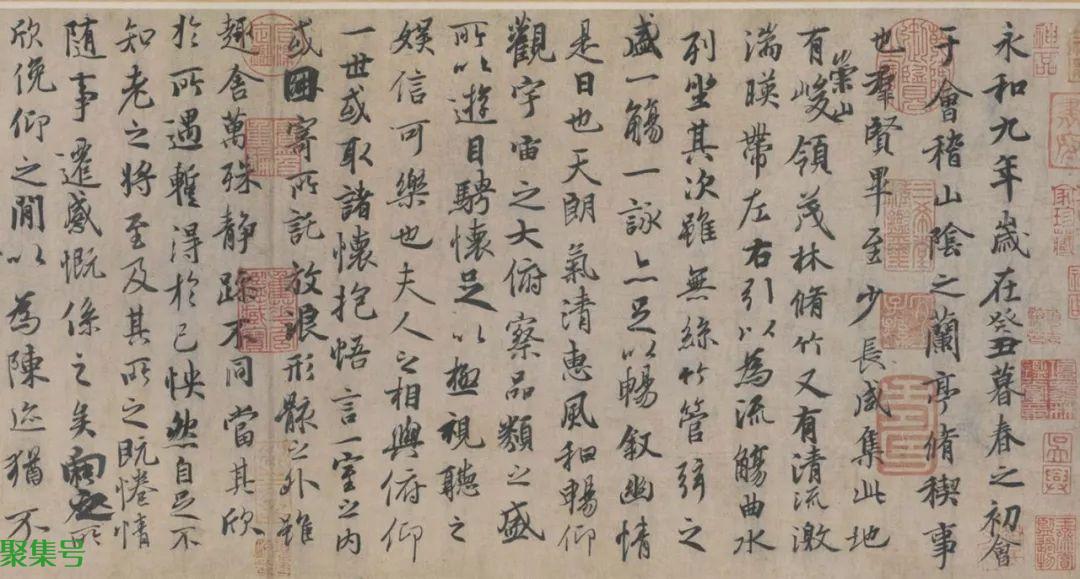 永和九年歲在癸丑暮春之初會
于會稽山陰之蘭亭脩稧事
也羣賢畢至少長咸集此地
有崇山峻領茂林脩竹又有清流激
湍暎帶左右引以為流觴曲水
列坐其次雖無絲竹管弦之
盛一觴一詠亦足以暢叙幽情
是日也天朗氣清惠風和暢仰
觀宇宙之大俯察品類之盛
所以遊目騁懷足以極視聽之
娛信可樂也夫人之相與俯仰
一世或取諸懷抱悟言一室之內
或因寄所託放浪形骸之外雖
趣舍萬殊靜躁不同當其欣
於所遇暫得於己怏然自足不
知老之將至及其所之既惓情
隨事遷感慨係之矣向之所
欣俛仰之閒以為陳迹猶不
聚集号